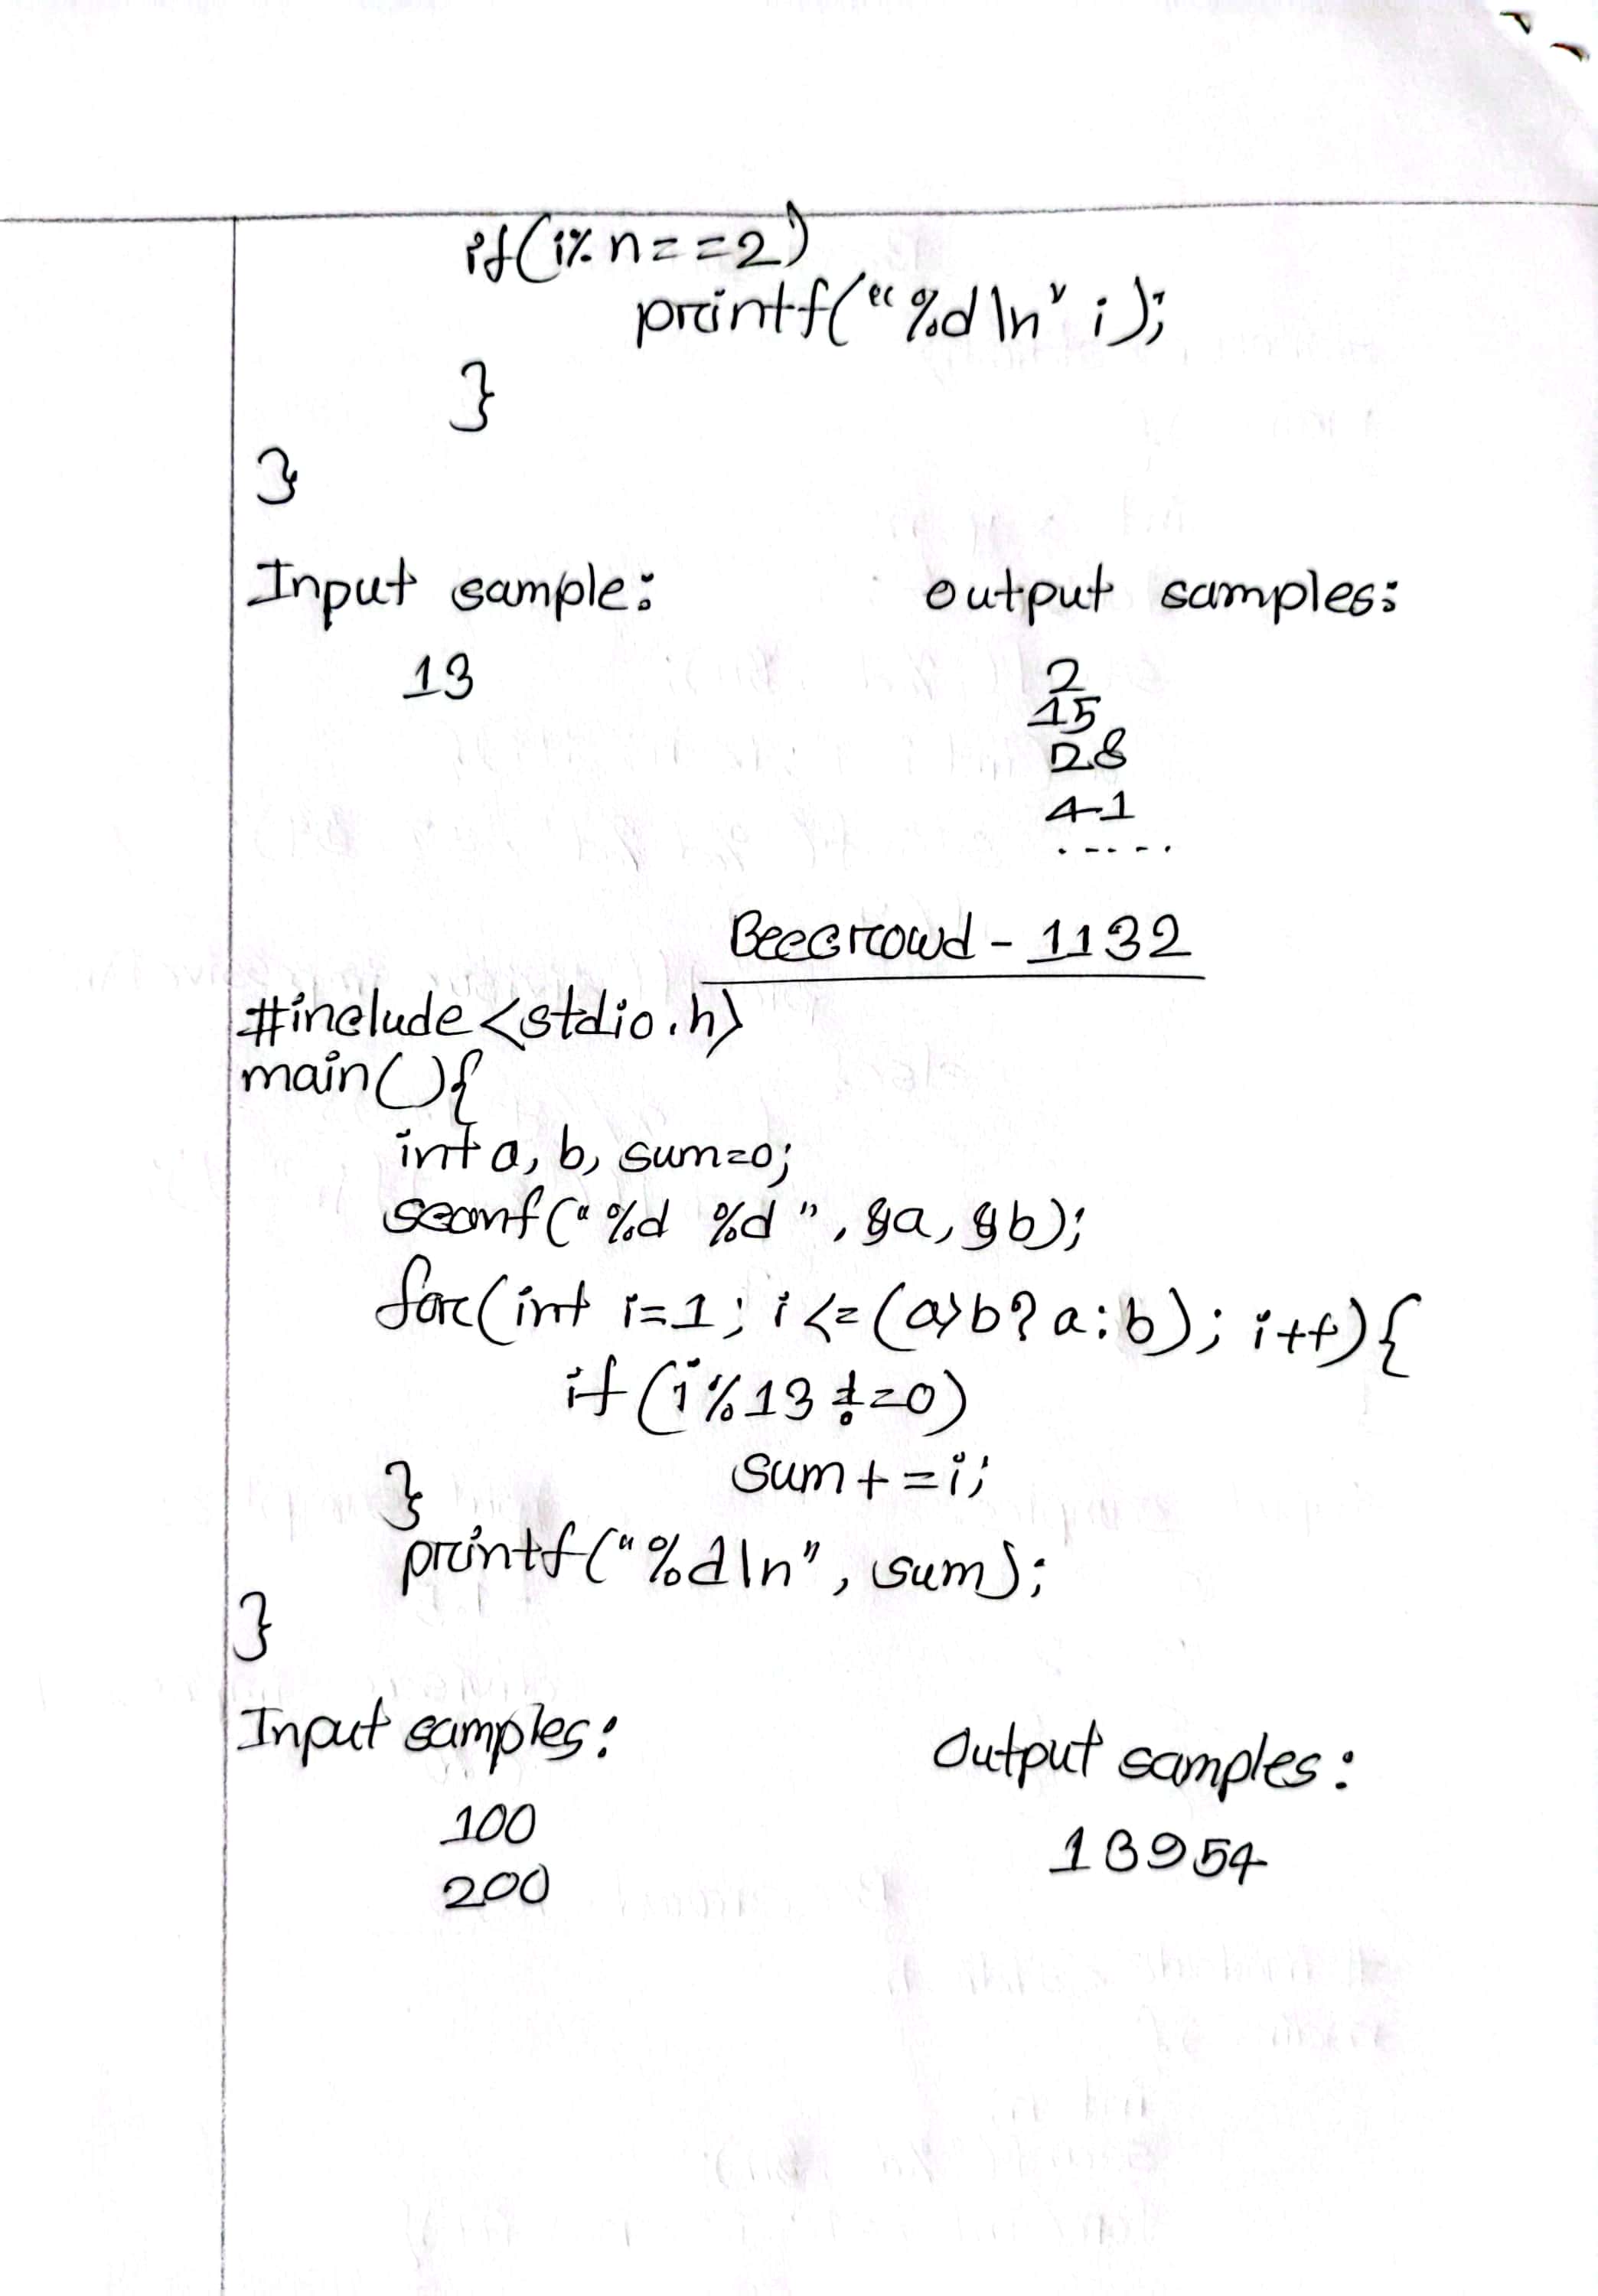 if(i% n==2)
printf("%d\n" i);
}
}
Input sample: output samples:
13 2
15
28
41
.....
Beecrowd - 1132
#include<stdio.h>
main(){
int a, b, sum=0;
scanf("%d %d", &a, &b);
for(int i=1; i<=(a>b?a:b); i++){
if(i%13!=0)
sum+=i;
}
printf("%d\n", sum);
}
Input samples: Output samples:
100 13954
200